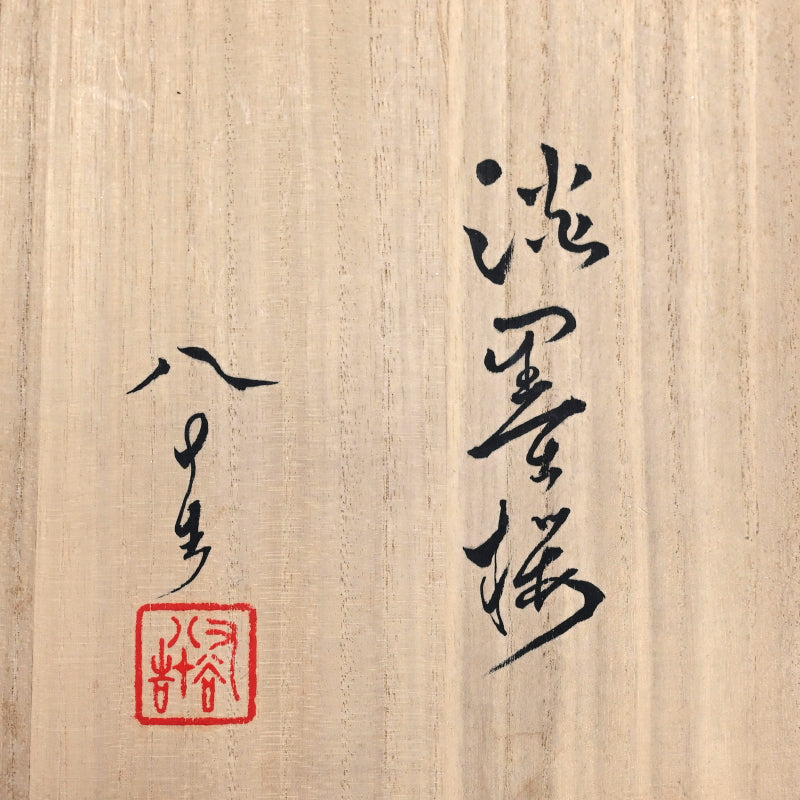 淡墨桜
八十吉
九谷
八十吉